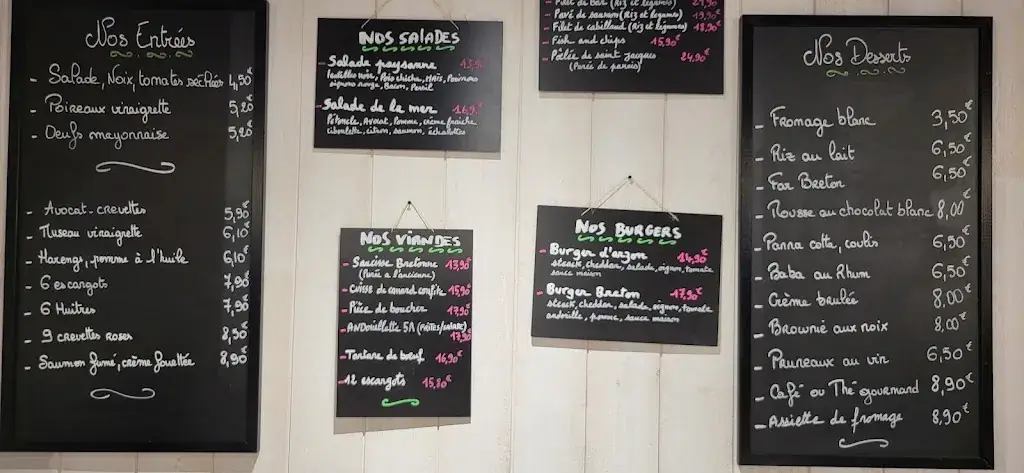 Nos Entrées
- Salade, Noix, tomates séchées 4,50€
- Poireaux vinaigrette 5,20€
- Oeufs mayonnaise 5,20€
- Avocat-crevettes 5,90€
- Museau vinaigrette 6,10€
- Harengs, pomme à l'huile 6,10€
- 6 escargots 7,90€
- 6 Huîtres 7,90€
- 9 crevettes roses 8,50€
- Saumon fumé, crème fouettée 8,90€
NOS SALADES
- Salade paysanne
oignons rouge, Bacon, Persil
- Salade de la mer 16,90€
Pétoncle, Avocat, Pomme, crème fraîche
Ciboulette, citron, saumon, échalottes
NOS VIANDES
- Saucisse Bretonne 13,90€
(Purée à l'ancienne)
- Cuisse de canard confite 15,90€
- Pièce de boucher 17,90€
- ANDOUILLETTE 5A (FRITES/SALADE)
17,90€
- Tartare de bœuf 16,90€
- 12 escargots 15,80€
- Filet de Bar (Riz et légumes)
- Pavé de saumon (Riz et légumes) 19,90€
- Filet de cabillaud (Riz et légumes) 18,90€
- Fish and chips 15,90€
- Poêlée de saint jacques 24,90€
(Purée de panais)
NOS BURGERS
- Burger d'anjou 14,90€
steack, cheddar, salade, oignon, tomate
sauce maison
- Burger Breton 17,90€
steack, cheddar, salade, oignon, tomate
andouille, pomme, sauce maison
Nos Desserts
- Fromage blanc 3,50€
- Riz au lait 6,50€
- Far Breton 6,50€
- Mousse au chocolat blanc 8,00€
- Panna cotta, coulis 6,50€
- Baba au Rhum 6,50€
- Crème brulée 8,00€
- Brownie aux noix 8,00€
- Pruneaux au vin 6,50€
- Café ou Thé gourmand 8,90€
- Assiette de fromage 8,90€